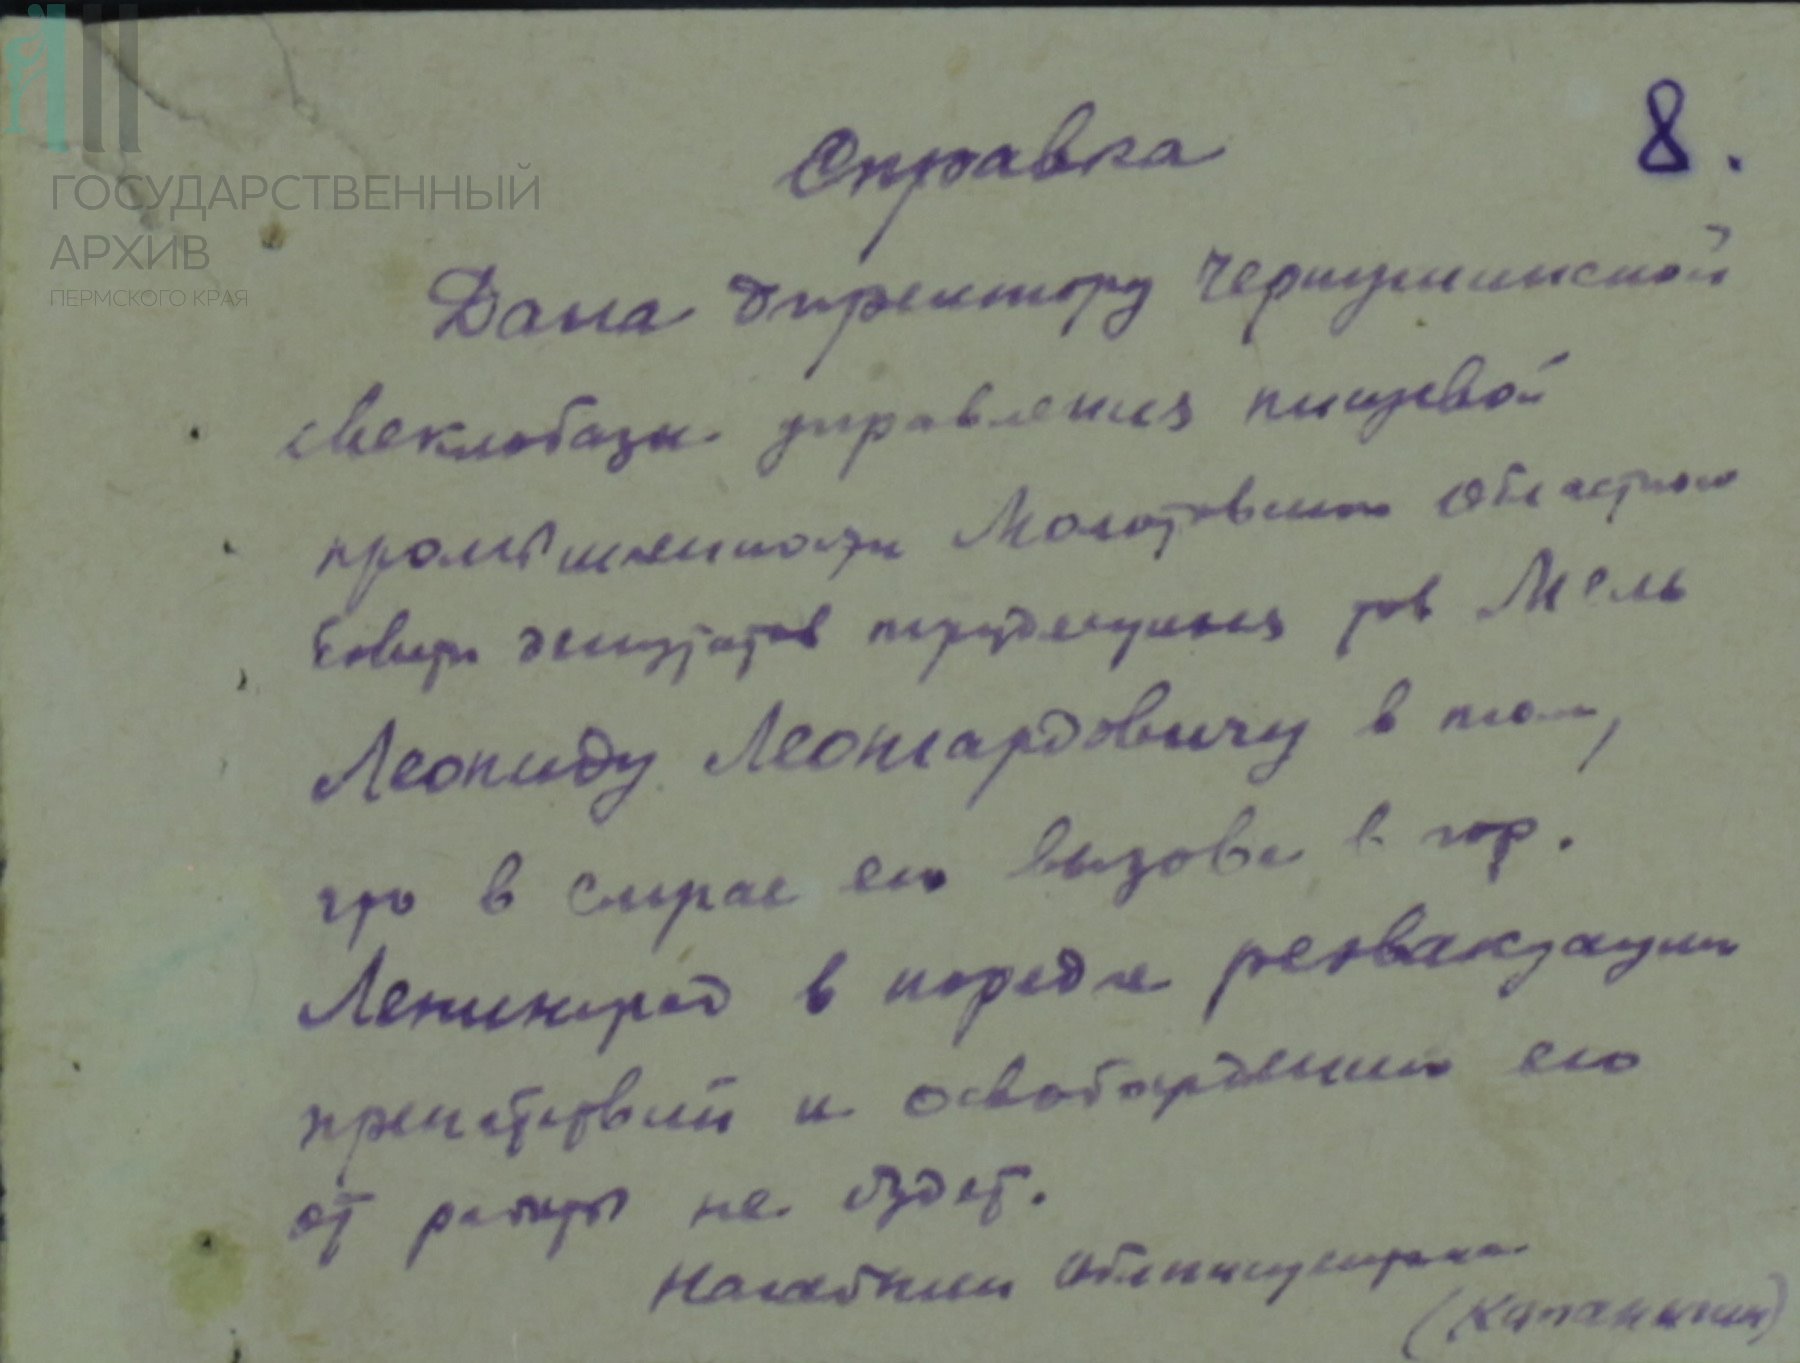 ГОСУДАРСТВЕННЫЙ
АРХИВ
ПЕРМСКОГО КРАЯ
8.
Справка
Дана директору Чернушинской
свеклобазы управления пищевой
промышленности Молотовского Областного
Совета депутатов трудящихся тов Мель
Леониду Леонгардовичу в том,
что в случае его вызова в гор.
Ленинград в порядке реэвакуации
препятствий к освобождению его
от работы не будет.
Начальник Облпищепрома